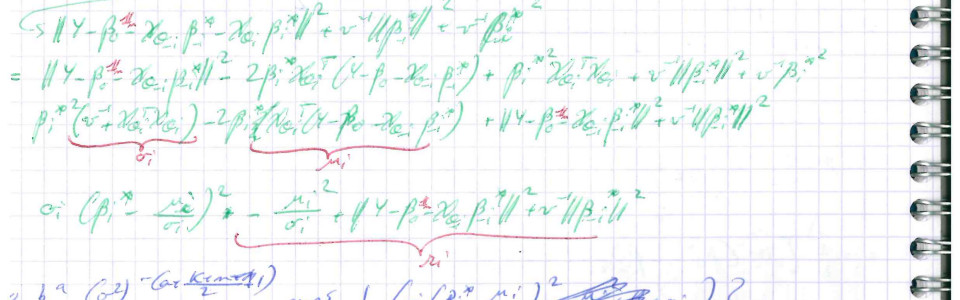 ‖Y - β₀𝟙 - X_{θ-i} β_{-i}^* - X_{θi} β_i^*‖² + v⁻¹‖β_{-i}^*‖² + v⁻¹β_i^{*2}
= ‖Y - β₀𝟙 - X_{θ-i} β_{-i}^*‖² - 2β_i^* X_{θi}^T (Y - β₀ - X_{θ-i} β_{-i}^*) + β_i^{*2} X_{θi}^T X_{θi} + v⁻¹‖β_{-i}^*‖² + v⁻¹β_i^{*2}
β_i^{*2} (v⁻¹ + X_{θi}^T X_{θi}) - 2β_i^* (X_{θi}^T (Y - β₀ - X_{θ-i} β_{-i}^*)) + ‖Y - β₀𝟙 - X_{θ-i} β_{-i}^*‖² + v⁻¹‖β_{-i}^*‖²
σ_i μ_i
σ_i (β_i^* - μ_i/σ_i)² - μ_i²/σ_i + ‖Y - β₀𝟙 - X_{θ-i} β_{-i}^*‖² + v⁻¹‖β_{-i}^*‖²
r_i
b^a (σ²)